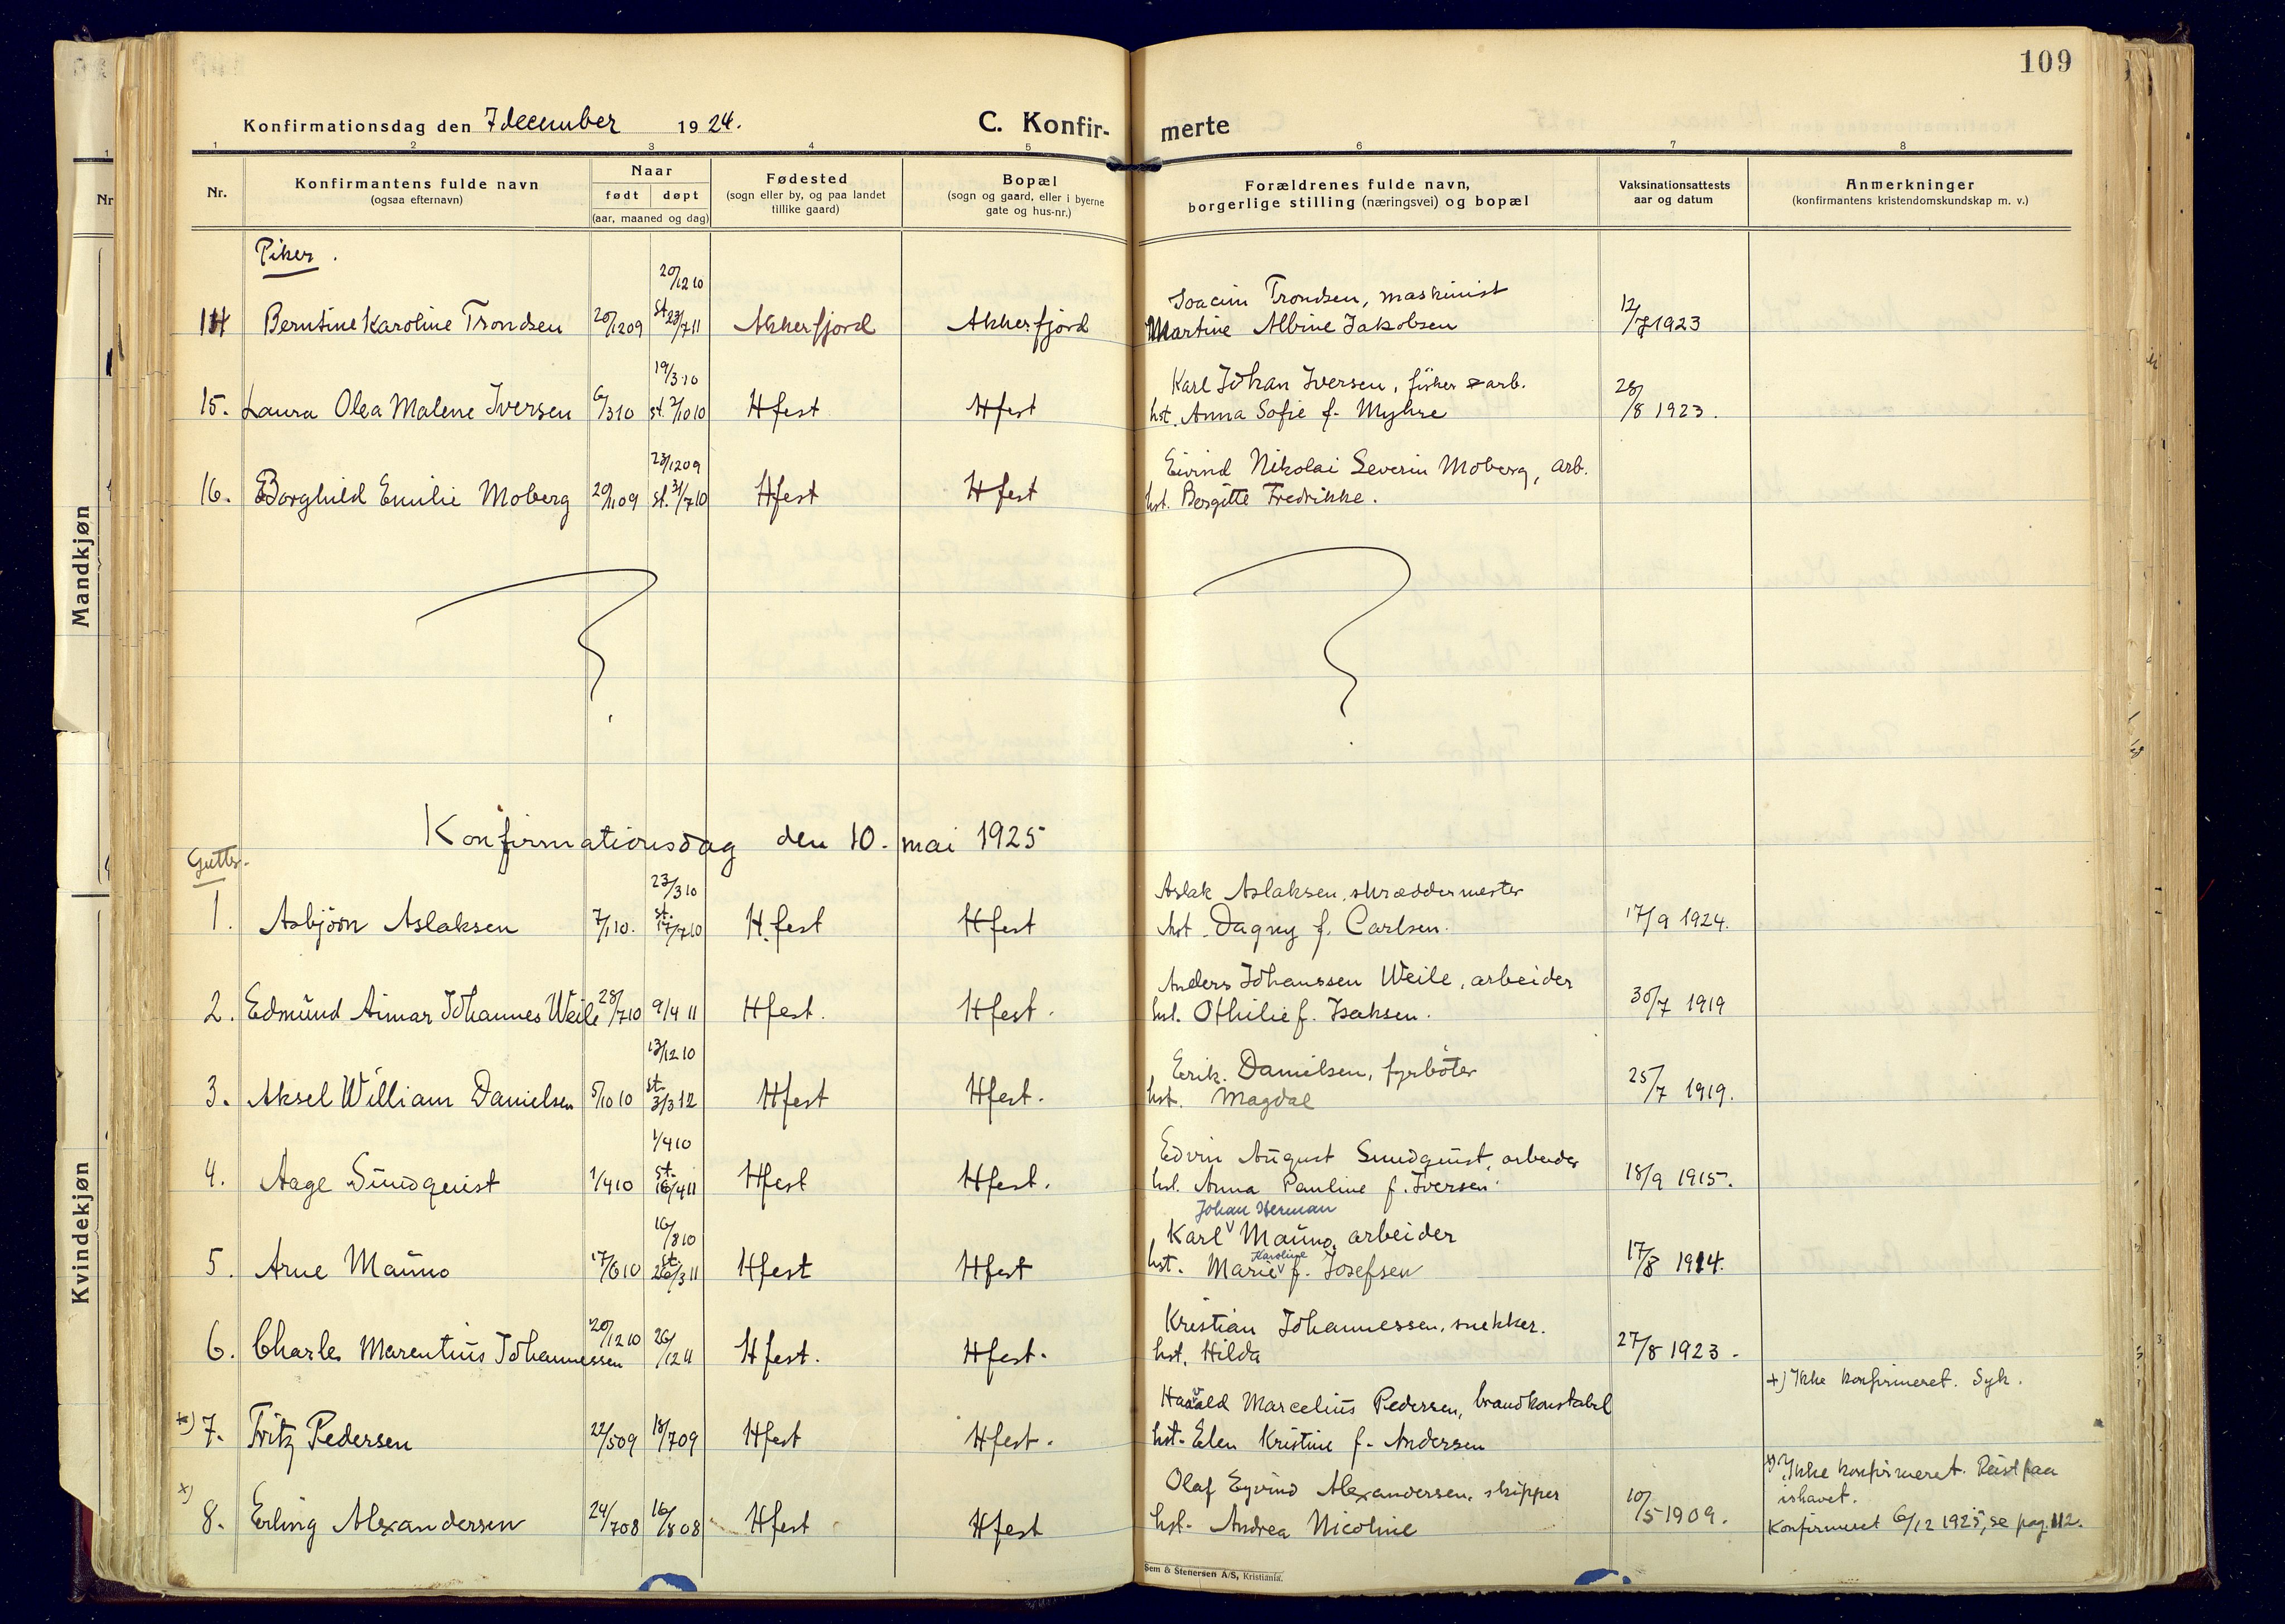 109
Konfirmationsdag den 7 december 1924.
C. Konfir- merte
1 2 3 4 5 6 7 8
Nr.
Konfirmantens fulde navn
(ogsaa efternavn)
Naar
født døpt
(aar, maaned og dag)
Fødested
(sogn eller by, og paa landet
tillike gaard)
Bopæl
(sogn og gaard, eller i byerne
gate og hus-nr.)
Forældrenes fulde navn,
borgerlige stilling (næringsvei) og bopæl
Vaksinationsattests
aar og datum
Anmerkninger
(konfirmantens kristendomskundskap m. v.)
Nr
Mandkjøn
Kvindekjøn
Piker.
20/12 10
Joacim Trondsen, maskinist
14 Berntine Karoline Trondsen 20/12 09 st. 23/7 11 Akkerfjord Akkerfjord Martine Albine Jakobsen 12/7 1923
19/3 10
Karl Johan Iversen, fisker & arb.
15. Laura Olea Malene Iversen 6/3 10 st. 2/10 10 Hfest Hfest hst. Anna Sofie f. Myhre 28/8 1923.
23/12 09
Eivind Nikolai Severin Moberg, arb.
16. Borghild Emilie Moberg 20/11 09 st. 31/7 10 Hfest Hfest hst. Bergitte Fredrikke.
Konfirmationsdag den 10. mai 1925
Gutter.
23/3 10
Aslak Aslaksen, skræddermester
1. Asbjörn Aslaksen 7/1 10. st. 17/7 10 H.fest Hfest hst. Dagny f. Carlsen. 17/9 1924.
Anders Johanssen Weile, arbeider
2. Edmund Aimar Johannes Weile 28/7 10 9/4 11 Hfest. Hfest. hst. Othilie f. Isaksen. 30/7 1919
13/12 10
Erik. Danielsen, fyrböter
3. Aksel William Danielsen 5/10 10 st. 3/3 12 Hfest Hfest. hst. Magdal 25/7 1919.
1/4 10
Edvin August Sundquist, arbeider
4. Aage Sundquist 1/4 10 st. 16/4 11 Hfest Hfest. hst. Anna Pauline f. Iversen 18/9 1915.
Johan Herman
16/8 10
Karl Mauno, arbeider
Karoline
5. Arne Mauno 17/6 10 st. 26/3 11 Hfest Hfest hst. Marie f. Josefsen 17/8 1914.
Kristian Johannessen, snekker.
6. Charles Marentius Johannessen 20/12 10 26/12 11 Hfest. Hfest. hst. Hilda 27/8 1923.
+) Ikke konfirmeret. Syk.
Harald Marcelius Pedersen, brandkonstabel
+) 7. Fritz Pedersen 22/5 09 18/7 09 Hfest Hfest. hst. Elen Kristine f. Andersen
x) Ikke konfirmeret. Reist paa
ishavet.
Olaf Eyvind Alexandersen, skipper
x) 8. Erling Alexandersen 24/7 08 16/8 08 Hfest Hfest hst. Andrea Nicoline 10/5 1909. Konfirmeret 6/12 1925, se pag. 112.
Sem & Stenersen A/S, Kristiania.